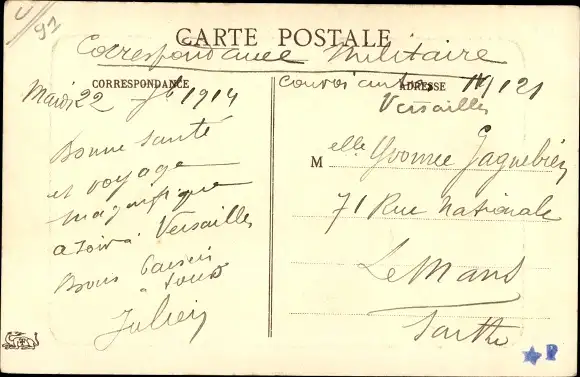 91
CARTE POSTALE
Correspondance Militaire
CORRESPONDANCE
Mardi 22 1914
Bonne santé
et voyage
magnifique
à Versailles
Bons baisers
à tous
Julien
ADRESSE
121
Versailles
M elle Yvonne
71 Rue Nationale
Le Mans
Sarthe
P